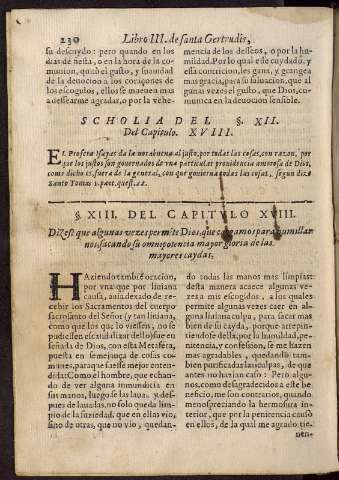 230 Libro III. de santa Gertrudis,
su descuydo: pero quando en los
dias de fiesta, o en la hora de la co-
munion, quito el gusto, y suauidad
de la deuocion a los coraçones de
los escogidos, ellos se mueuen mas
a dessearme agradar, o por la vehe-
mencia de los desseos, o por la hu-
mildad. Por lo qual este cuydado, y
esta contricion, les gana, y grangea
mas gracia, para su saluacion, que al
gunas vezes la deuocion, que se co-
munica en la deuocion sensible.
SCHOLIA DEL §. XII.
Del Capitulo. XVIII.
EL Profeta Isayas da la norabuena al justo, por todas las cosas, con razon, por
que los justos son gouernados de vna particular prouidencia amorosa de Dios,
como dicho es, fuera de la general, con que gouierna todas las cosas, segun dize
Santo Tomas 1. part. quest. 22.
§. XIII. DEL CAPITULO XVIII.
Dizese que algunas vezes permite Dios, que caygamos para humillar
nos, sacando su omnipotencia mayor gloria de las
mayores caydas.
HAziendo tambie oracion,
por vna que por liuiana
causa, auia dexado de re-
cebir los Sacramentos del cuerpo
sacrosanto del Señor (y tan liuiana,
como que los que lo viessen, no se
pudiessen escandalizar dello) fue en
señada de Dios, con esta Metafora,
puesta en semejança de cosas co-
munes, para que fuesse mejor enten-
dida: Como el hombre, que echan-
do de ver alguna inmundicia en
sus manos, luego se las laua, y des-
pues de lauadas, no solo que da lim-
pio de la suziedad, que en ellas vio,
sino de otras, que no vio, quedan-
do todas las manos mas limpias:
desta manera acaece algunas ve-
zes a mis escogidos, a los quales
permite algunas vezes caer en al-
guna liuiana culpa, para sacar mas
bien de su cayda, porque arrepin-
tiendose della, por la humildad, pe-
nitencia, y confession, se me hazen
mas agradables, quedando tam-
bien purificadas las culpas, de que
antes no hazian caso: Pero algu-
nos, como desagradecidos a este be-
neficio, me son contrarios, quando
menospreciando la hermosura in-
terior, que por la penitencia causò
en ellos, de la qual me agrado tie-
nen-